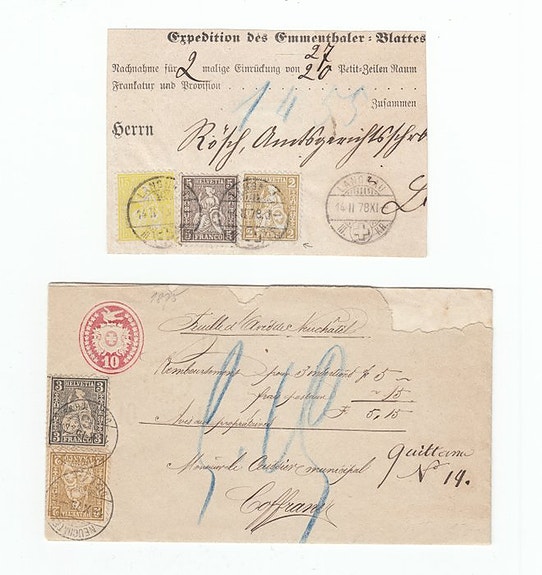 Expedition des Emmenthaler-Blattes
Nachnahme für 2 malige Einrückung von 27/20 Petit-Zeilen Raum
Frankatur und Provision
Zusammen
Herrn Rösch, Amtsgerichtsschrb
HELVETIA
5 5
5 FRANCO 5
2 2
LANGNAU
14 II 78 XI
1895
10
Feuille d'Avis de Neuchâtel
Remboursement pour 3 insertions F 5 ~
frais postaux ~ 15
F. 5,15
Avis aux propriétaires
quittance
Monsieur le Caissier municipal
N° 19.
Coffrane
HELVETIA
3 3
3 FRANCO 3
2 2